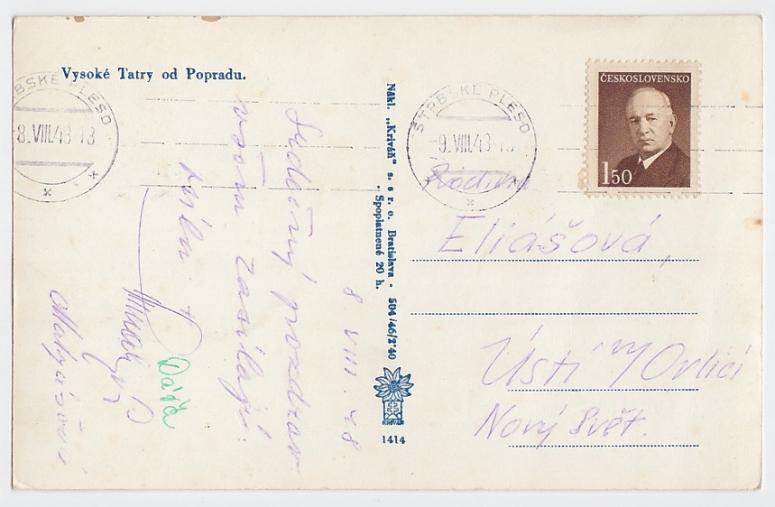 Vysoké Tatry od Popradu.
ŠTRBSKÉ PLESO
8.VIII.48-13
Srdečný pozdrav
všem zasílají
8. VIII. 48.
Dáša
Nákl. „Kriváň" s. s r. o. Bratislava - 504/46/Z'40
• Spoplatnené 20 h.
KRIVÁŇ
1414
ŠTRBSKÉ PLESO
-9.VIII.48-
ČESKOSLOVENSKO
1 50
Rodina
Eliášová,
Ústí n/Orlicí
Nový Svět.